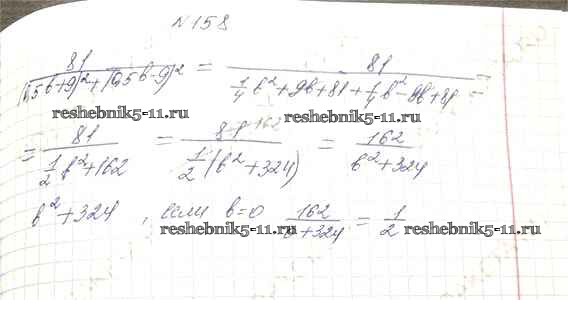 № 158
81/((0,5b+9)²+(0,5b-9)²) = 81/(1/4 b²+9b+81+1/4 b²-9b+81) =
reshebnik5-11.ru reshebnik5-11.ru
= 81/(1/2 b²+162) = 162/(1/2 (b²+324)) = 162/(b²+324)
b²+324, если b=0 162/(0+324) = 1/2
reshebnik5-11.ru reshebnik5-11.ru